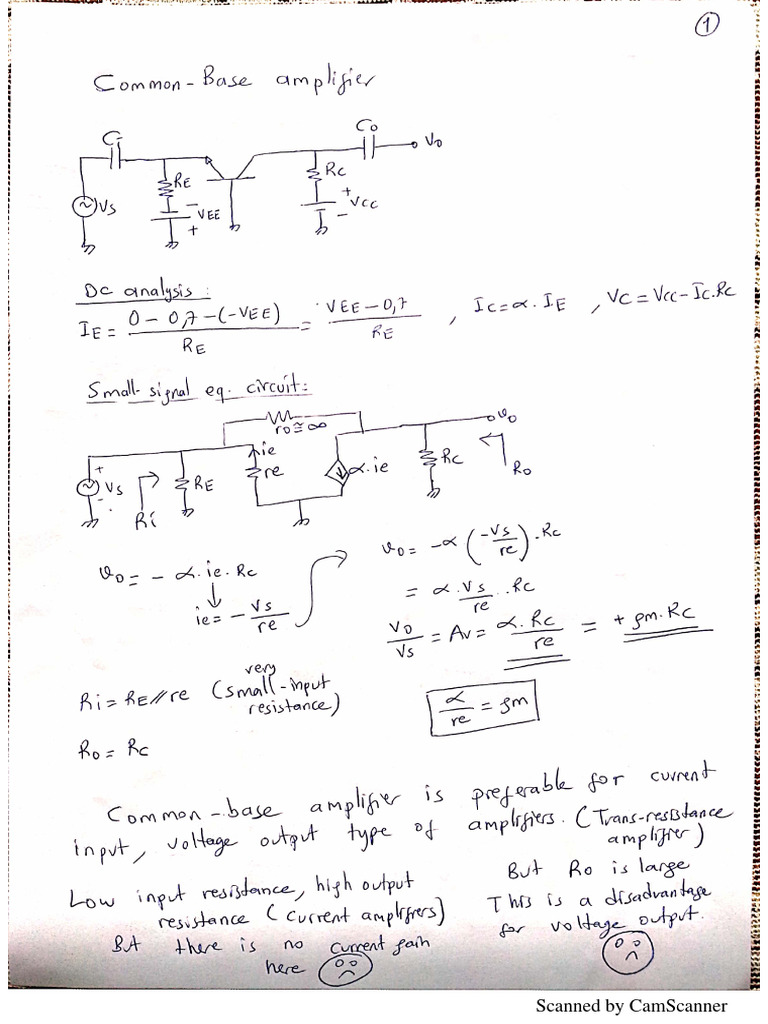 1
Common-Base amplifier
Ci
Co
Vo
RE
RC
VS
VEE
VCC
- +
+ -
DC analysis:
IE = 0 - 0,7 - (-VEE) / RE = VEE - 0,7 / RE , IC = α. IE , VC = VCC - IC.RC
Small-signal eq. circuit:
ro ≅ ∞
vo
ie
re
α.ie
RC
Ro
+
VS
-
RE
Ri
vo = - α. ie. RC
ie = - VS / re
vo = -α (-VS / re) . RC
= α. VS / re . RC
VO / VS = AV = α. RC / re = + gm. RC
α / re = gm
Ri = RE // re (very small-input resistance)
Ro = RC
Common-base amplifier is preferable for current
input, voltage output type of amplifiers. (Trans-resistance
amplifier)
Low input resistance, high output
resistance (current amplifiers)
But there is no current gain
here
But Ro is large
This is a disadvantage
for voltage output.
Scanned by CamScanner